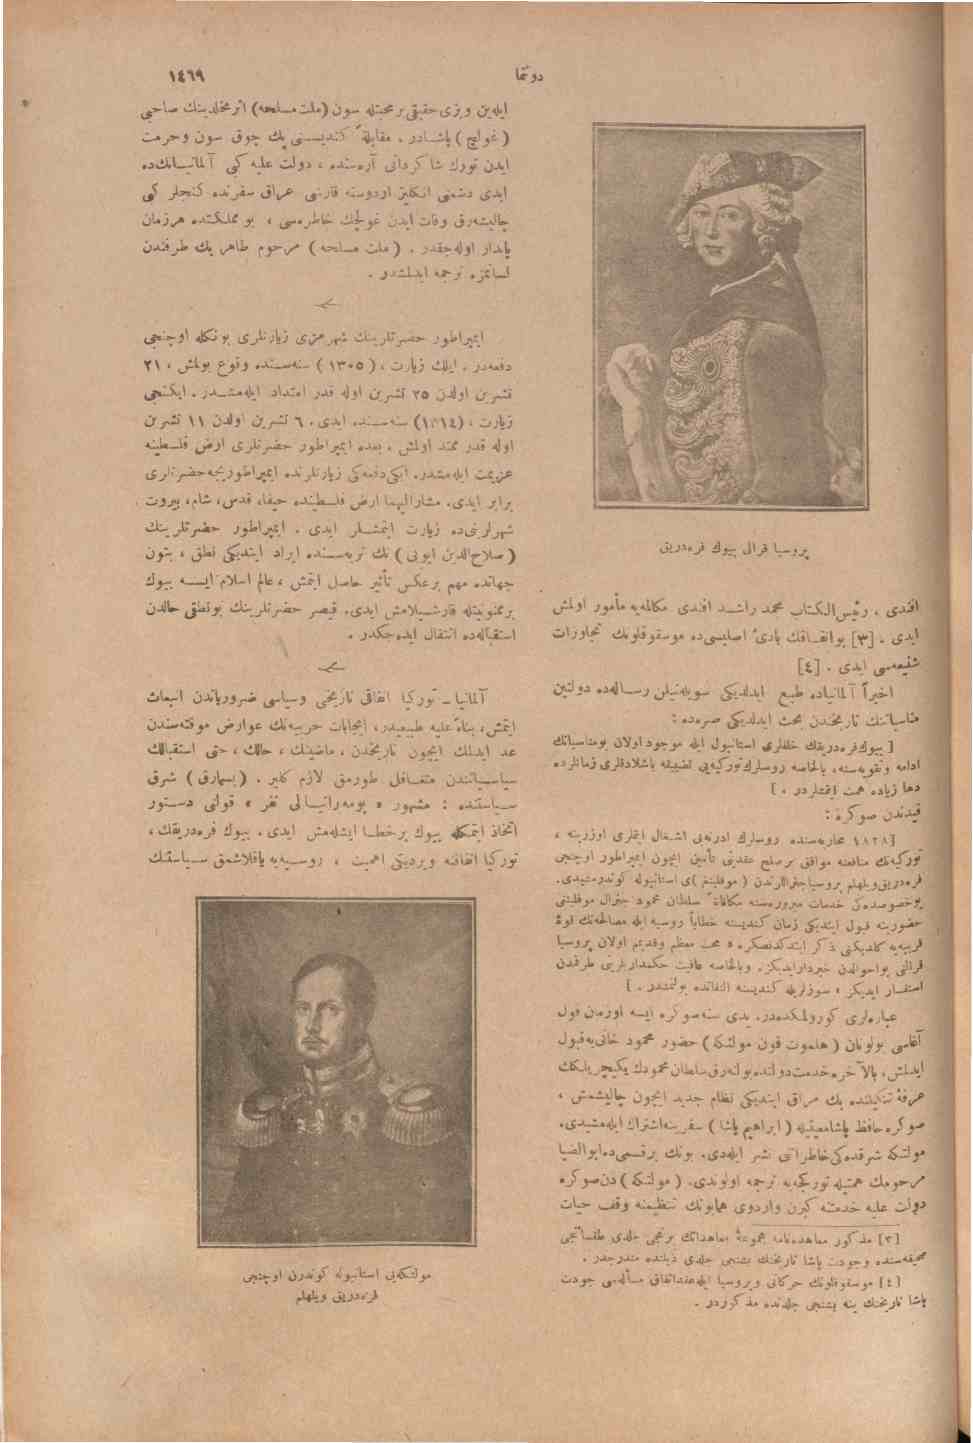 دوننما
١٤٦٩
پروسیا قرالی بیوك فره‌دریق
افندی ، رئیس‌الکتاب محمد راشـد افندی مکالمه‌یه مأمور اولمش
ایدی . [٣] بواتفـاقك باریٔ اصلیسی‌ده موسقوفلونك تجاوزات
شنیعه‌سی ایدی . [٤]
اخیراً آلمانیاده طبع ایدلدیکی سویله‌نیلن رسـاله‌ده دولتین
مناسباتنك تاریخندن بحث ایدلدیکی صره‌ده :
[ بیوك فره‌دریقك خلفلری استانبول ایله موجود اولان بومناسباتك
ادامه وتقویه‌سنه، بالخاصه روسلرك تورکیه‌یی تضییقه باشلادقلری زمانلرده
دها زیاده همت ایتمشلردر . ]
قیدندن صوکره :
[ ١٨٢٨ محاربه‌سنده روسلرك ادرنه‌یی اشـغال ایتملری اوزرینه ،
تورکیه‌نك منافعنه موافق بر صلح عقدینی تأمین ایچون ایمپراطور اوچنجی
فره‌دریق ویلهلم پروسیا جنراللرندن ( موفلینغ ) ی استانبوله کوندرمشیدی.
بوخصوصده‌کی خدمات مبروره‌سنه مکافاةً سلطان محمود جنرال موفلینی
حضورینه قبول ایتدیکی زمان کندیسنه خطاباً روسیه ایله مصالحه‌نك قوۀ
قریبه‌یه کلدیکنی ذکر ایتدکدنصکره « محب معظم وقدیمم اولان پروسیا
قرالنی بواحوالدن خبردار ایدیکز. وبالخاصه عاقبت حکمدارلرینی طرفمدن
استفسار ایدیکز » سوزلریله کندیسنه التفاتده بولنمشدر . ]
عباره‌لری کورولمکده‌در. یدی سنه صوکره ایسه اوزمان قول
آغاسی بولونان ( هلموت فون مولتکه ) حضور محمود خانی‌یه قبول
ایدلمش، بالآخره خدمت دولتده بولنه‌رق سلطان محمودك یکیچریلکك
صوکره حافظ پاشا معیتیله ( ابراهیم پاشا ) سفرینه اشتراك ایله‌مشیدی.
مولتکه شرقده‌کی خاطراتنی نشر ایله‌دی. بونك برقسمی‌ده ابوالضیا
مرحومك همتیله تورکجه‌یه ترجمه اولوندی. ( مولتکه ) دن صوکره
دولت علیه خدمتنه کیرن واردوی همایونك تنظیمنه وقف حیات
[٣] مذکور معاهده‌نامه مجموعۀ معاهداتك برنجی جلدی طقسانیجی
صحیفه‌سنده وجودت پاشا تاریخنك بشنجی جلدی ذیلنده مندرجدر .
[٤] موسقوفلونك حرکاتی وپروسیا ایله عقد اتفاق مسأله‌سی جودت
پاشا تاریخنك ینه بشنجی جلدنده مذکوردر .
ایله‌ین وبزی حقیقی بر محبتله سون (ملت مسلحه) اثر مخلدینك صاحبی
( غولچ ) پاشـادر . مقابلةً کندیسـنی پك چوق سون وحرمت
ایدن تورك شاکردانی آره‌سنده ، دولت علیه کبی آلمانیـانك‌ده
ابدی دشمنی انکلیز اردوسنه قارشی عراق سفرنده کنجلر کبی
چالیشه‌رق وفات ایدن غولچك خاطره‌سی ، بو مملکتده هرزمان
پایدار اوله‌جقدر . ( ملت مسلحه ) مرحوم طاهر بك طرفندن
لسانمزه ترجمه ایدلمشدر .
ایمپراطور حضرتلرینك شهرمزی زیارتلری بونکله اوچنجی
دفعه‌در . ایلك زیارت ، ( ١٣٠٥ ) سنه‌سنده وقوع بولمش ، ٢١
تشرین اولدن ٢٥ تشرین اوله قدر امتداد ایله‌مشـدر . ایکنجی
زیارت ، (١٣١٤) سنه‌سـنده ایدی . ٦ تشرین اولدن ١١ تشرین
اوله قدر ممتد اولمش ، بعده ایمپراطور حضرتلری ارض فلسطینه
عزیمت ایله‌مشدر. ایکی دفعه‌کی زیارتلرنده ایمپراطوریچه حضرتلری
برابر ایدی. مشارالیهما ارض فلسطینده حیفا، قدس ، شام، بیروت
شهرلرینی‌ده زیارت ایتمشـلر ایدی . ایمپراطور حضرتلرینك
( صلاح‌الدین ایوبی ) نك تربه‌سـنده ایراد ایتدیکی نطق ، بتون
جهانده مهم برعکس تأثیر حاصل ایتمش ، عالم اسلام ایسـه بیوك
برممنونیتله قارشـیلامش ایدی. قیصر حضرتلرینك بونطقی حالدن
استقباله‌ده انتقال ایده‌جکدر .
آلمانیا ـ تورکیا اتفاقی تاریخی وسیاسی ضروریاتدن انبعاث
ایتمش، بناءً علیه طبیعیدر، ایجابات حربیه‌نك عوارض موقته‌سندن
عد ایدلمك ایچون تاریخدن ، ماضینك ، حالك ، حتی استقبالك
سیاسـیاتندن متغـافل طورمق لازم کلیر . (بسمارق) شرق
سـیاستنده : مشهور « پومه‌رانیـالی نفر » قولنی دسـتور
اتخاذ ایتمکله بیوك برخطـا ایشله‌مش ایدی. بیوك فره‌دریقك ،
تورکیا اتفاقنه ویردیکی اهمیت ، روسـیه‌یه یاقلاشمق سـیاستنك
مولتکه‌یی استانبوله کوندرن اوچنجی
فره‌دریق ویلهلم